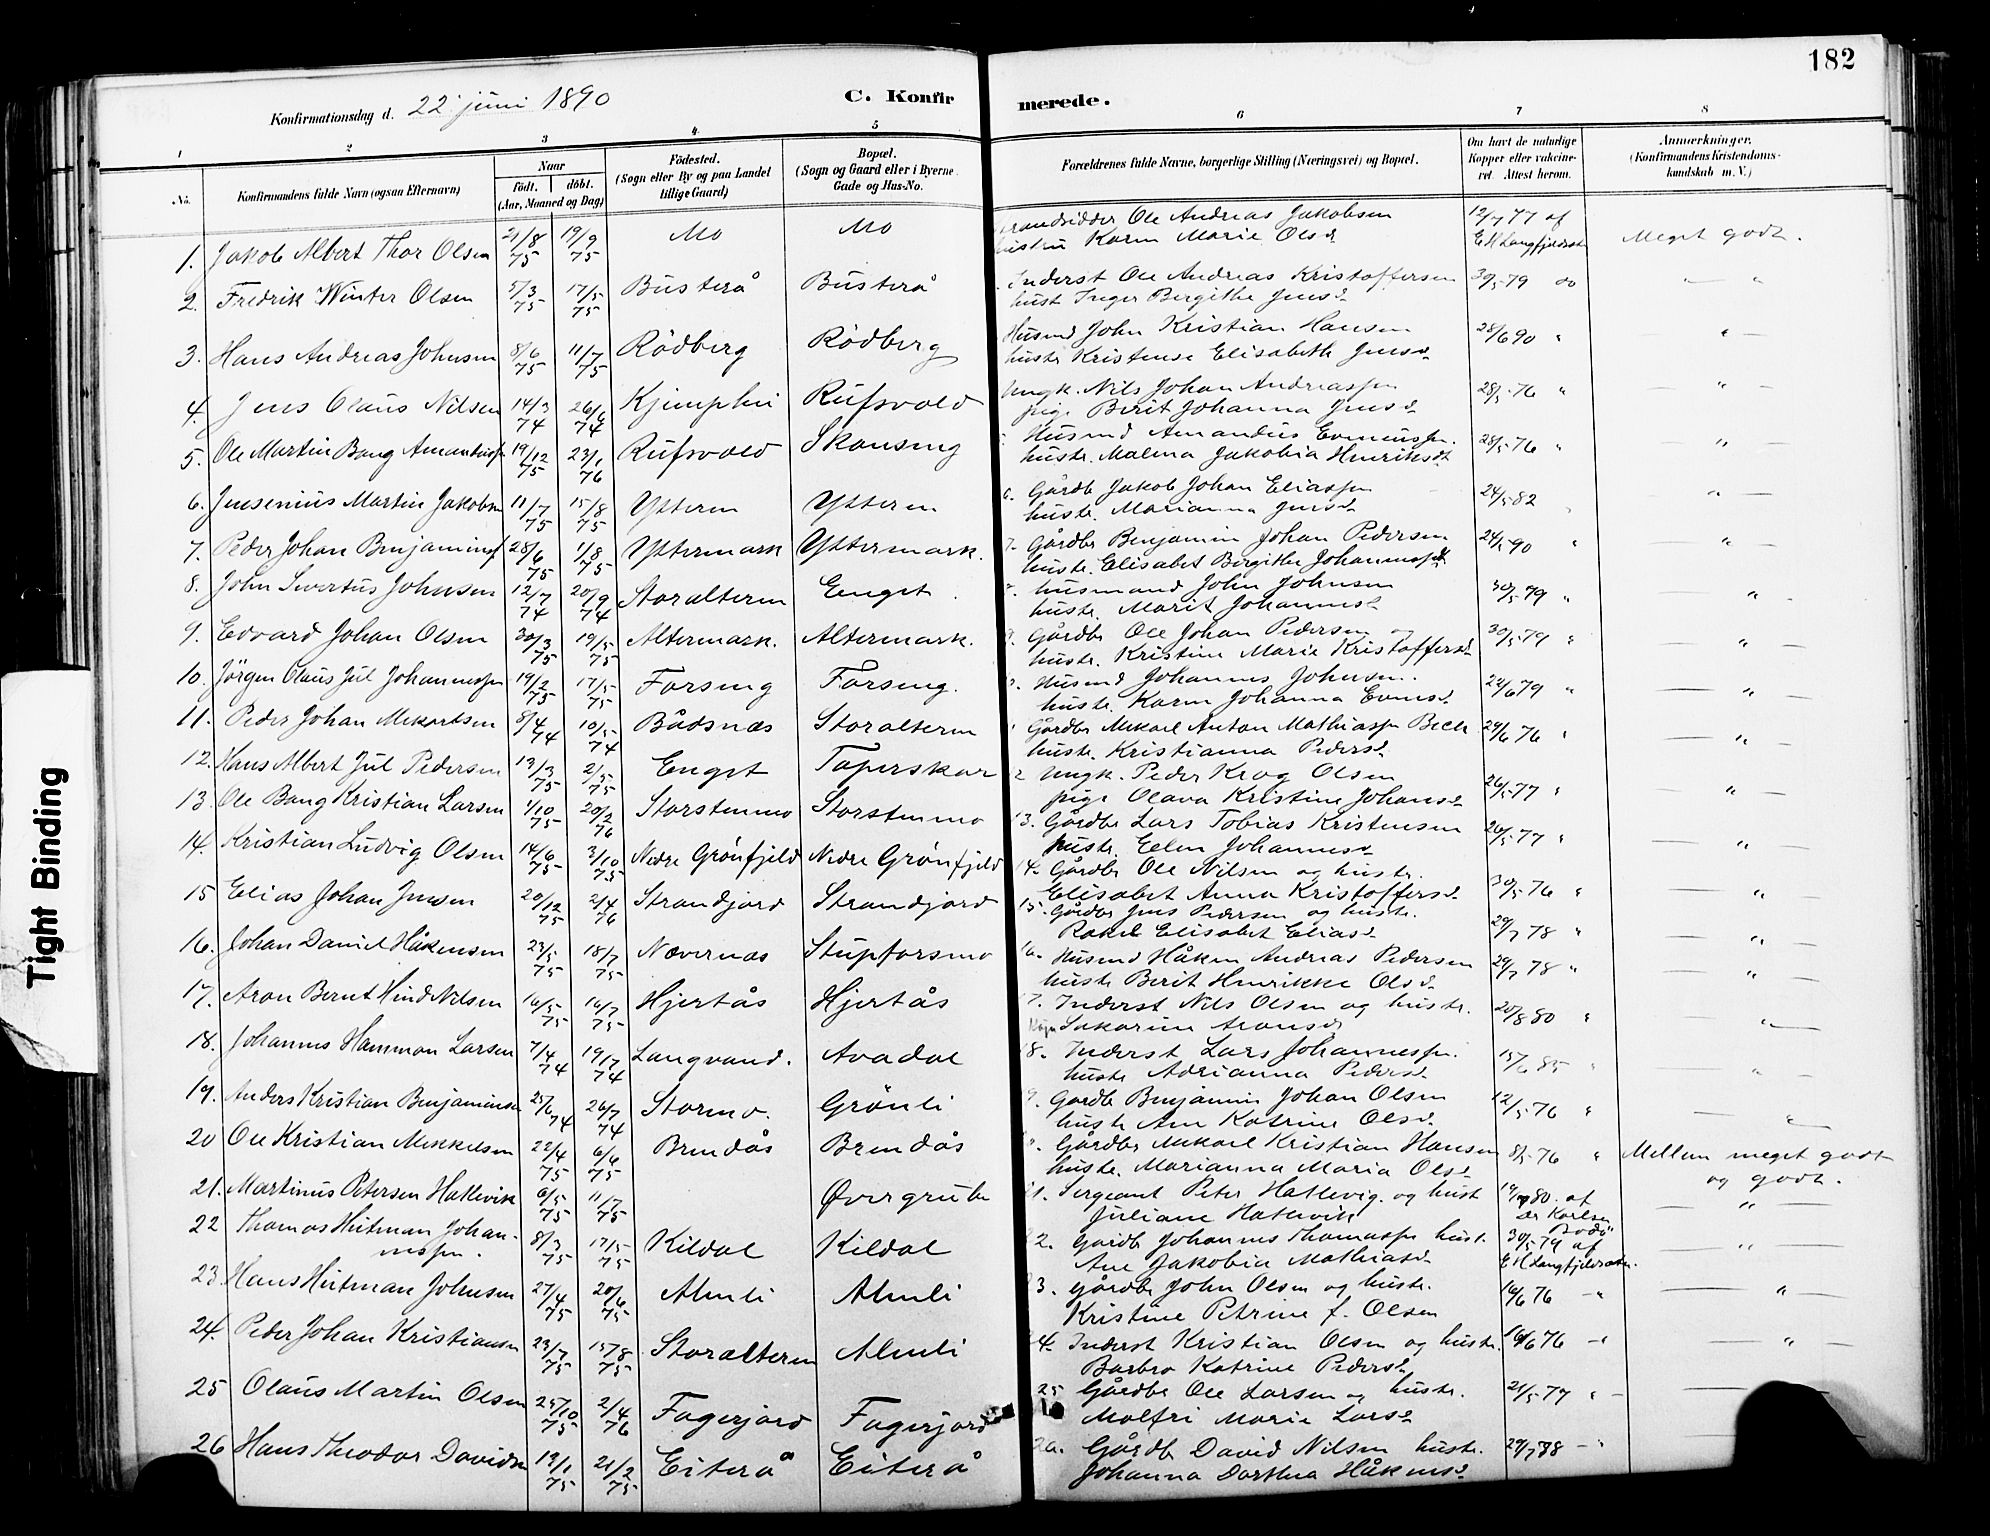 182
Konfirmationsdag d. 22 juni 1890
C. Konfirmerede.
1 2 3 4 5 6 7 8
No.
Konfirmandens fulde Navn (ogsaa Efternavn)
Naar
födt. döbt.
(Aar, Maaned og Dag)
Födested.
(Sogn eller By og paa Landet
tillige Gaard)
Bopæl.
(Sogn og Gaard eller i Byerne
Gade og Hus-No.
Forældrenes fulde Navne, borgerlige Stilling (Næringsvei) og Bopæl.
Om havt de naturlige
Kopper eller vakcine-
ret. Attest herom.
Anmærkninger.
(Konfirmandens Kristendoms-
kundskab m. V.)
1. Jakob Albert Thor Olsen 21/8 75 19/9 75 Mo Mo Strandsidder Ole Andreas Jakobsen
hustru Karen Marie Olsd 12/7 77 af E H Langfjeldræt Meget godt.
2. Fredrik Winter Olsen 5/3 75 17/5 75 Busterå Busterå Inderst Ole Andreas Kristoffersen
hust Inger Birgithe Jensd 30/5 79 do " 
3. Hans Andreas Johnsen 8/6 75 11/7 75 Rödberg Rödberg Husmd John Kristian Hansen
hustr Kristense Elisabeth Jensd 28/6 90 " "
4. Jens Olaus Nilsen 14/3 74 26/6 74 Kjemphei Rufsvold Ungk. Nils Johan Andreassen
pige Berit Johanna Jensd 28/5 76 " "
5. Ole Martin Bang Amandussen 19/12 75 23/1 76 Rufsvold Skansing Husmd Amandus Evenssen.
hustr. Malena Jakobia Henriksdt 28/5 76 " "
6. Jensenius Martin Jakobsen 11/7 75 15/8 75 Ytteren Ytteren 6. Gårdb Jakob Johan Eliassen
hustr. Marianna Jensd 24/5 82 " "
7. Peder Johan Benjaminsen 28/6 75 1/8 75 Yttermark Yttermark. 7. Gårdbr Benjamin Johan Pedersen
hustr. Elisabet Birgithe Johannesdt 24/5 90 " "
8. John Sivertus Johnsen 12/7 74 20/9 74 Storalteren Enget. husmand John Johnsen
hustr. Marit Johannesd 30/5 79 " "
9. Edvard Johan Olsen 30/3 75 19/5 75 Altermark. Altermark. Gårdbr Ole Johan Pedersen og
hustr. Kristine Marie Kristoffersd 30/5 79 " "
10. Jörgen Olaus Jul Johannessen 19/2 75 17/5 75 Forsing Forsing. Husmd Johannes Johnsen.
hustr. Karen Johanna Evensd 24/6 79 " "
11. Peder Johan Mekarlsen 8/4 74 10/5 74 Bådsnæs Storalteren Gårdbr Mekael Anton Mathiassen Bech
hustr. Kristianna Pedersd 24/6 76 " "
12. Hans Albert Jul Pedersen 19/3 75 2/5 75 Enget Taperskar Ungk. Peder Krog Olsen
pige Olava Kristine Johansd 26/5 77 " "
13. Ole Bang Kristian Larsen 1/10 75 20/2 76 Storstenmo Storstenmo 13. Gårdbr Lars Tobias Kristensen
hustr. Ellen Johannesd 26/5 77 " "
14. Kristian Ludvig Olsen 14/6 75 3/10 75 Nedre Grönfjeld Nedre Grönfjeld 14. Gårdbr Ole Nilsen og hustr.
Elisabet Anna Kristoffersd 30/5 76 " "
15 Elias Johan Jensen 20/12 75 2/4 76 Strandjord Strandjord 15. Gårdbr Jens Pedersen og hustr.
Rakel Elisabet Eliasd 29/7 78 " "
16. Johan Daniel Håkensen 23/5 75 18/7 75 Nævernæs Stupforsmo 16. Husmd Håken Andreas Pedersen
hustr Berit Henrikke Olsd 29/7 78 " "
17. Aron Bernt Hind Nilsen 16/5 75 16/7 75 Hjertås Hjertås 17. Inderst Nils Olsen og hustr.
Sakarine Aronsd 20/8 80 " "
18. Johannes Hammon Larsen 7/4 74 19/7 74 Langvand. Avadal 18. Inderst Lars Johannessen.
hustr Adrianna Pedersd 15/6 85 " "
19. Anders Kristian Benjaminsen 25/6 74 26/7 74 Stormo. Grönli 9. Gårdb Benjamin Johan Olsen
hustr Ane Katrine Olsd. 12/5 76 " "
20 Ole Kristian Mekkelsen 22/4 75 6/6 75 Brendås Brendås Gårdbr Mekael Kristian Hansen
hustr. Marianna Maria Olsd 8/5 76 " Mellem meget godt
og godt.
21. Martinus Petersen Hatlevik 6/5 75 11/7 75 Øvergruben 21. Sergeant Peter Hatlevig. og hust
Juliane Hatlevik 80 af Dr Karlsen Bodö "
22 Thomas Hutman Johan-
nessen. 8/3 75 17/5 75 Kildal Kildal 2. Gårdb Johannes Thomassen hust.
Ane Jakobia Mathiasd 30/5 79 af E H Langfjeldræt. "
23. Hans Hutman Johnsen 27/4 75 20/6 75 Almli Almli 3. Gårdbr John Olsen og hustr.
Kristine Petrine f. Olsen 16/6 76 " "
24. Peder Johan Kristiansen 23/7 75 15/8 75 Storalteren Almli 4. Inderst Kristian Olsen og hustr.
Barbro Katrine Pedersd 16/6 76 " "
25 Olaus Martin Olsen 25/10 75 2/4 76 Fagerjord Fagerjord 25 Gårdbr Ole Larsen og hustr.
Malfri Marie Larsd 21/5 77 "
26 Hans Theodor Davidsen 19/1 75 21/2 75 Eiterå Eiterå 26. Gårdb David Nilsen hustr.
Johanna Dorthea Håkensd 29/7 78 "
Tight Binding